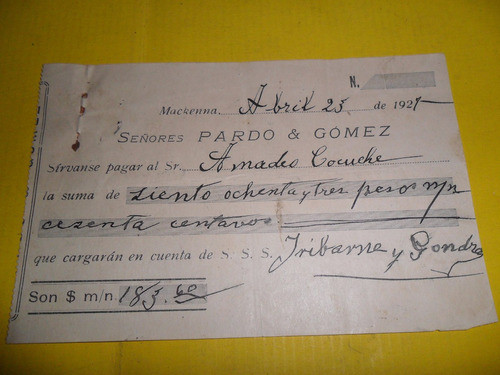 N.
Mackenna, Abril 25 de 1921
SEÑORES PARDO & GÓMEZ
Sírvanse pagar al Sr. Amadeo Cocuche
la suma de siento ochenta y tres pesos m/n
cezenta centavos
que cargarán en cuenta de S. S. S. Iribarne y Gondra
Son $ m/n. 183.60